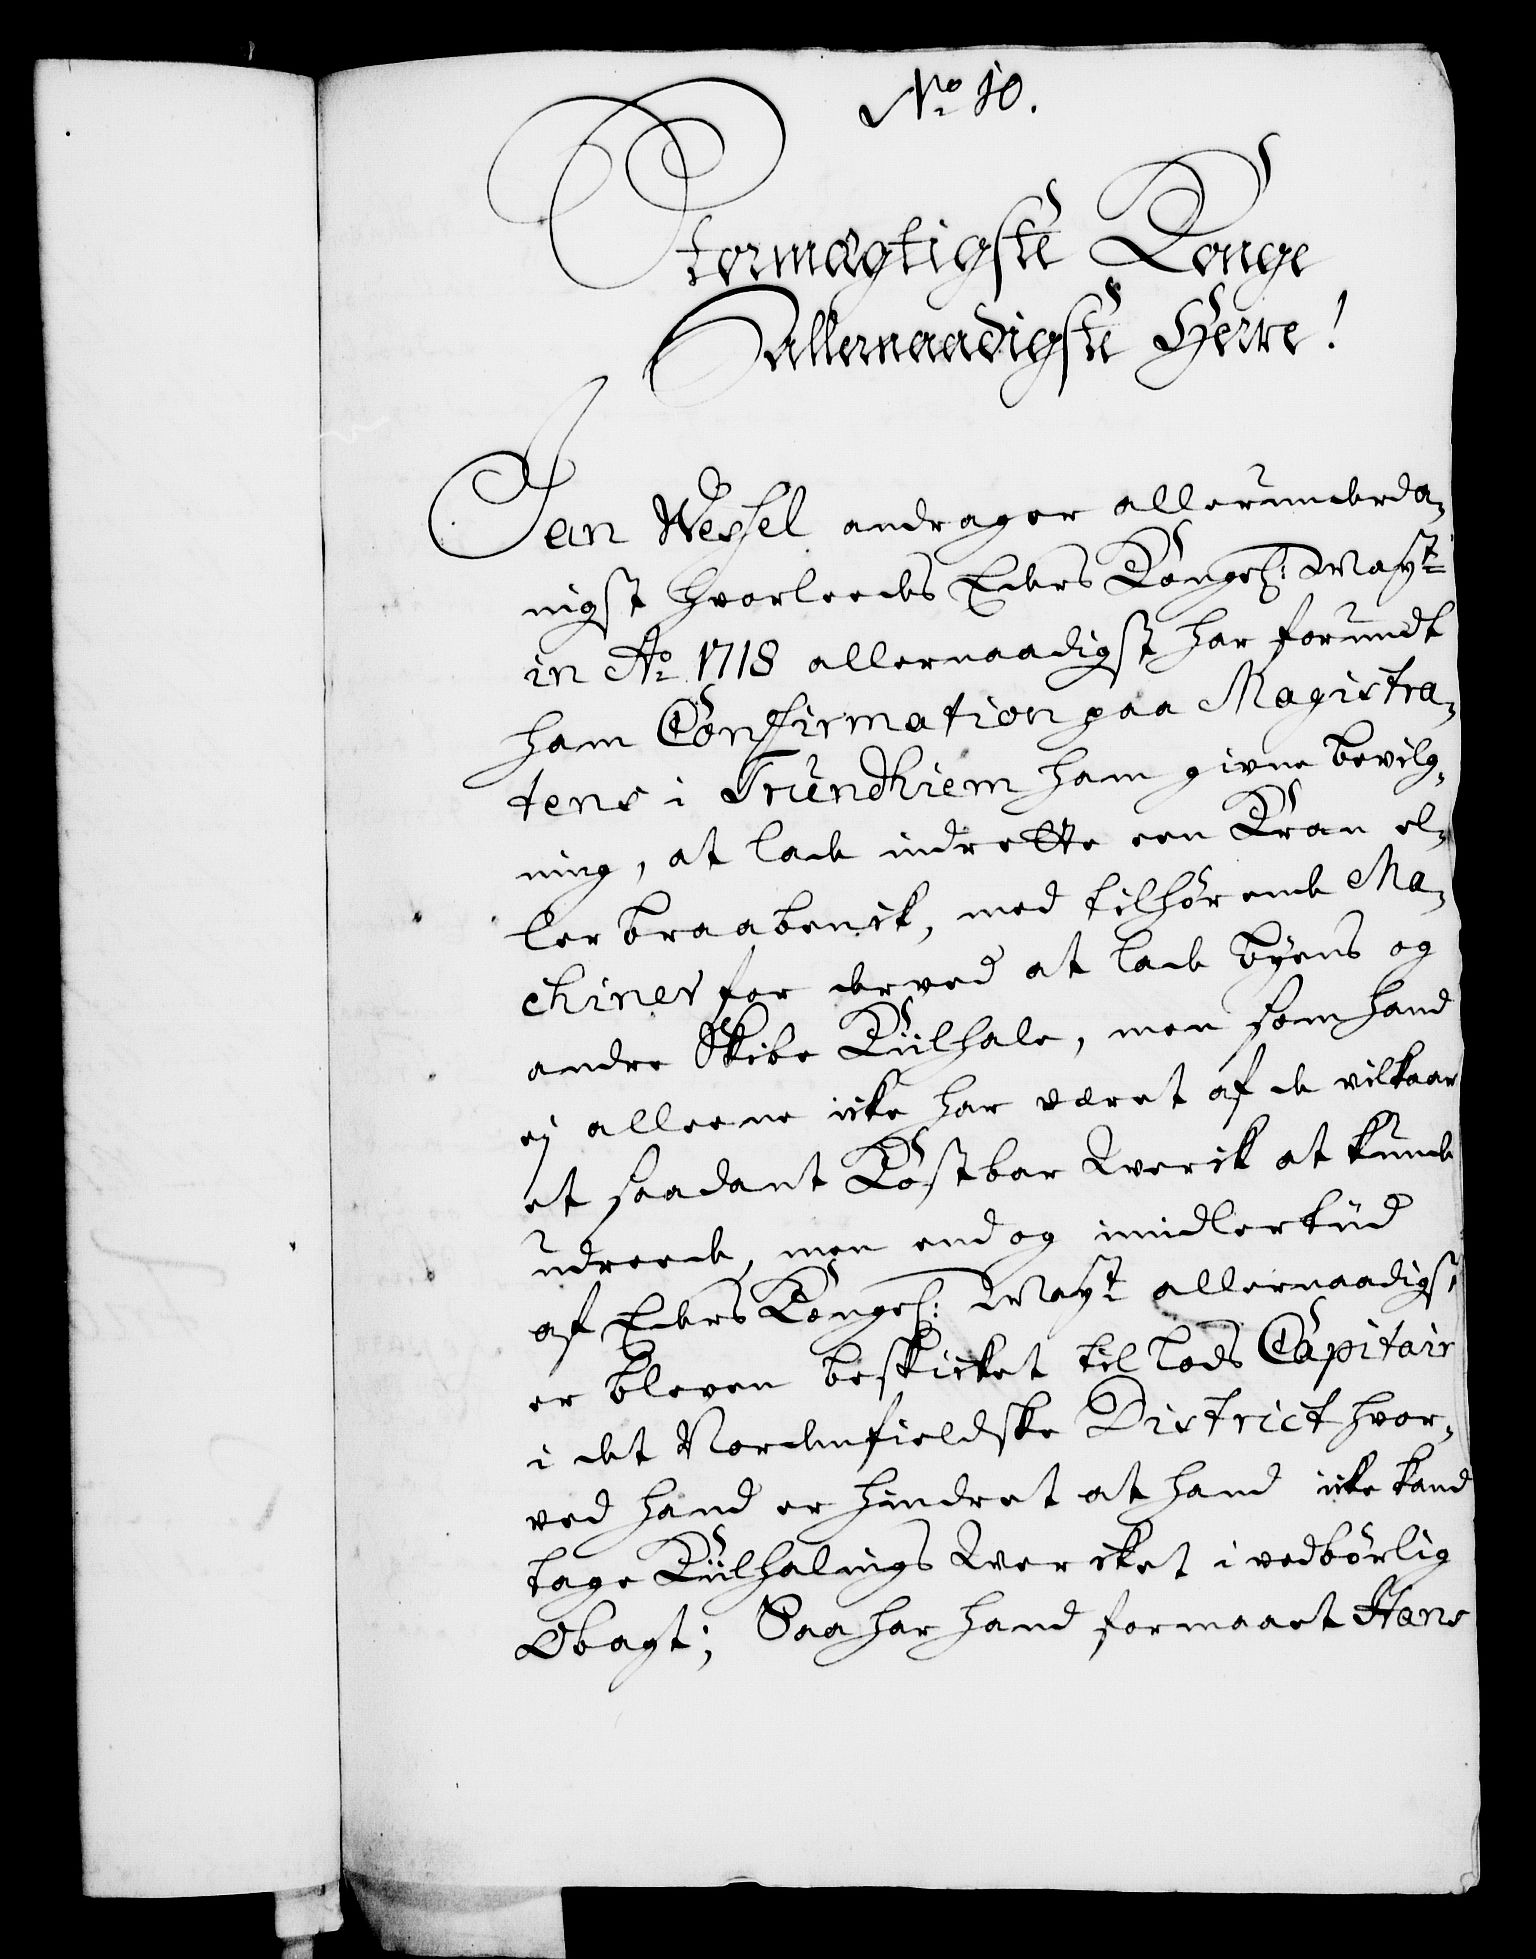 No 10.
Stormægtigste Konge
Allernaadigste Herre!
Jan Wessel andrager allerunderda-
nigst hvorleedes Eders Kongel: Mayt
in Ao 1718 allernaadigst har forundt
ham Confirmation paa Magistra-
tens i Trundhiem ham givne bevilg-
ning, at lade indrette een Kran el-
ler braabenck, med tilhörende Ma-
chiner for derved at lade byens og
andre Skibe Kiilhale, men som hand
ej alleene icke har været af de vilkaar
et saadant Kostbar Werck at kunde
udreede, men end og imidlertiid
af Eders Kongel: Mayt allernaadigst
er bleven beskicket til Lods Capitain
i det Nordenfieldske District hvor-
ved hand er hindret at hand icke kand
tage Kiilhalings Wercket i vedbörlig
Obagt; Saa har hand formaaet Hans